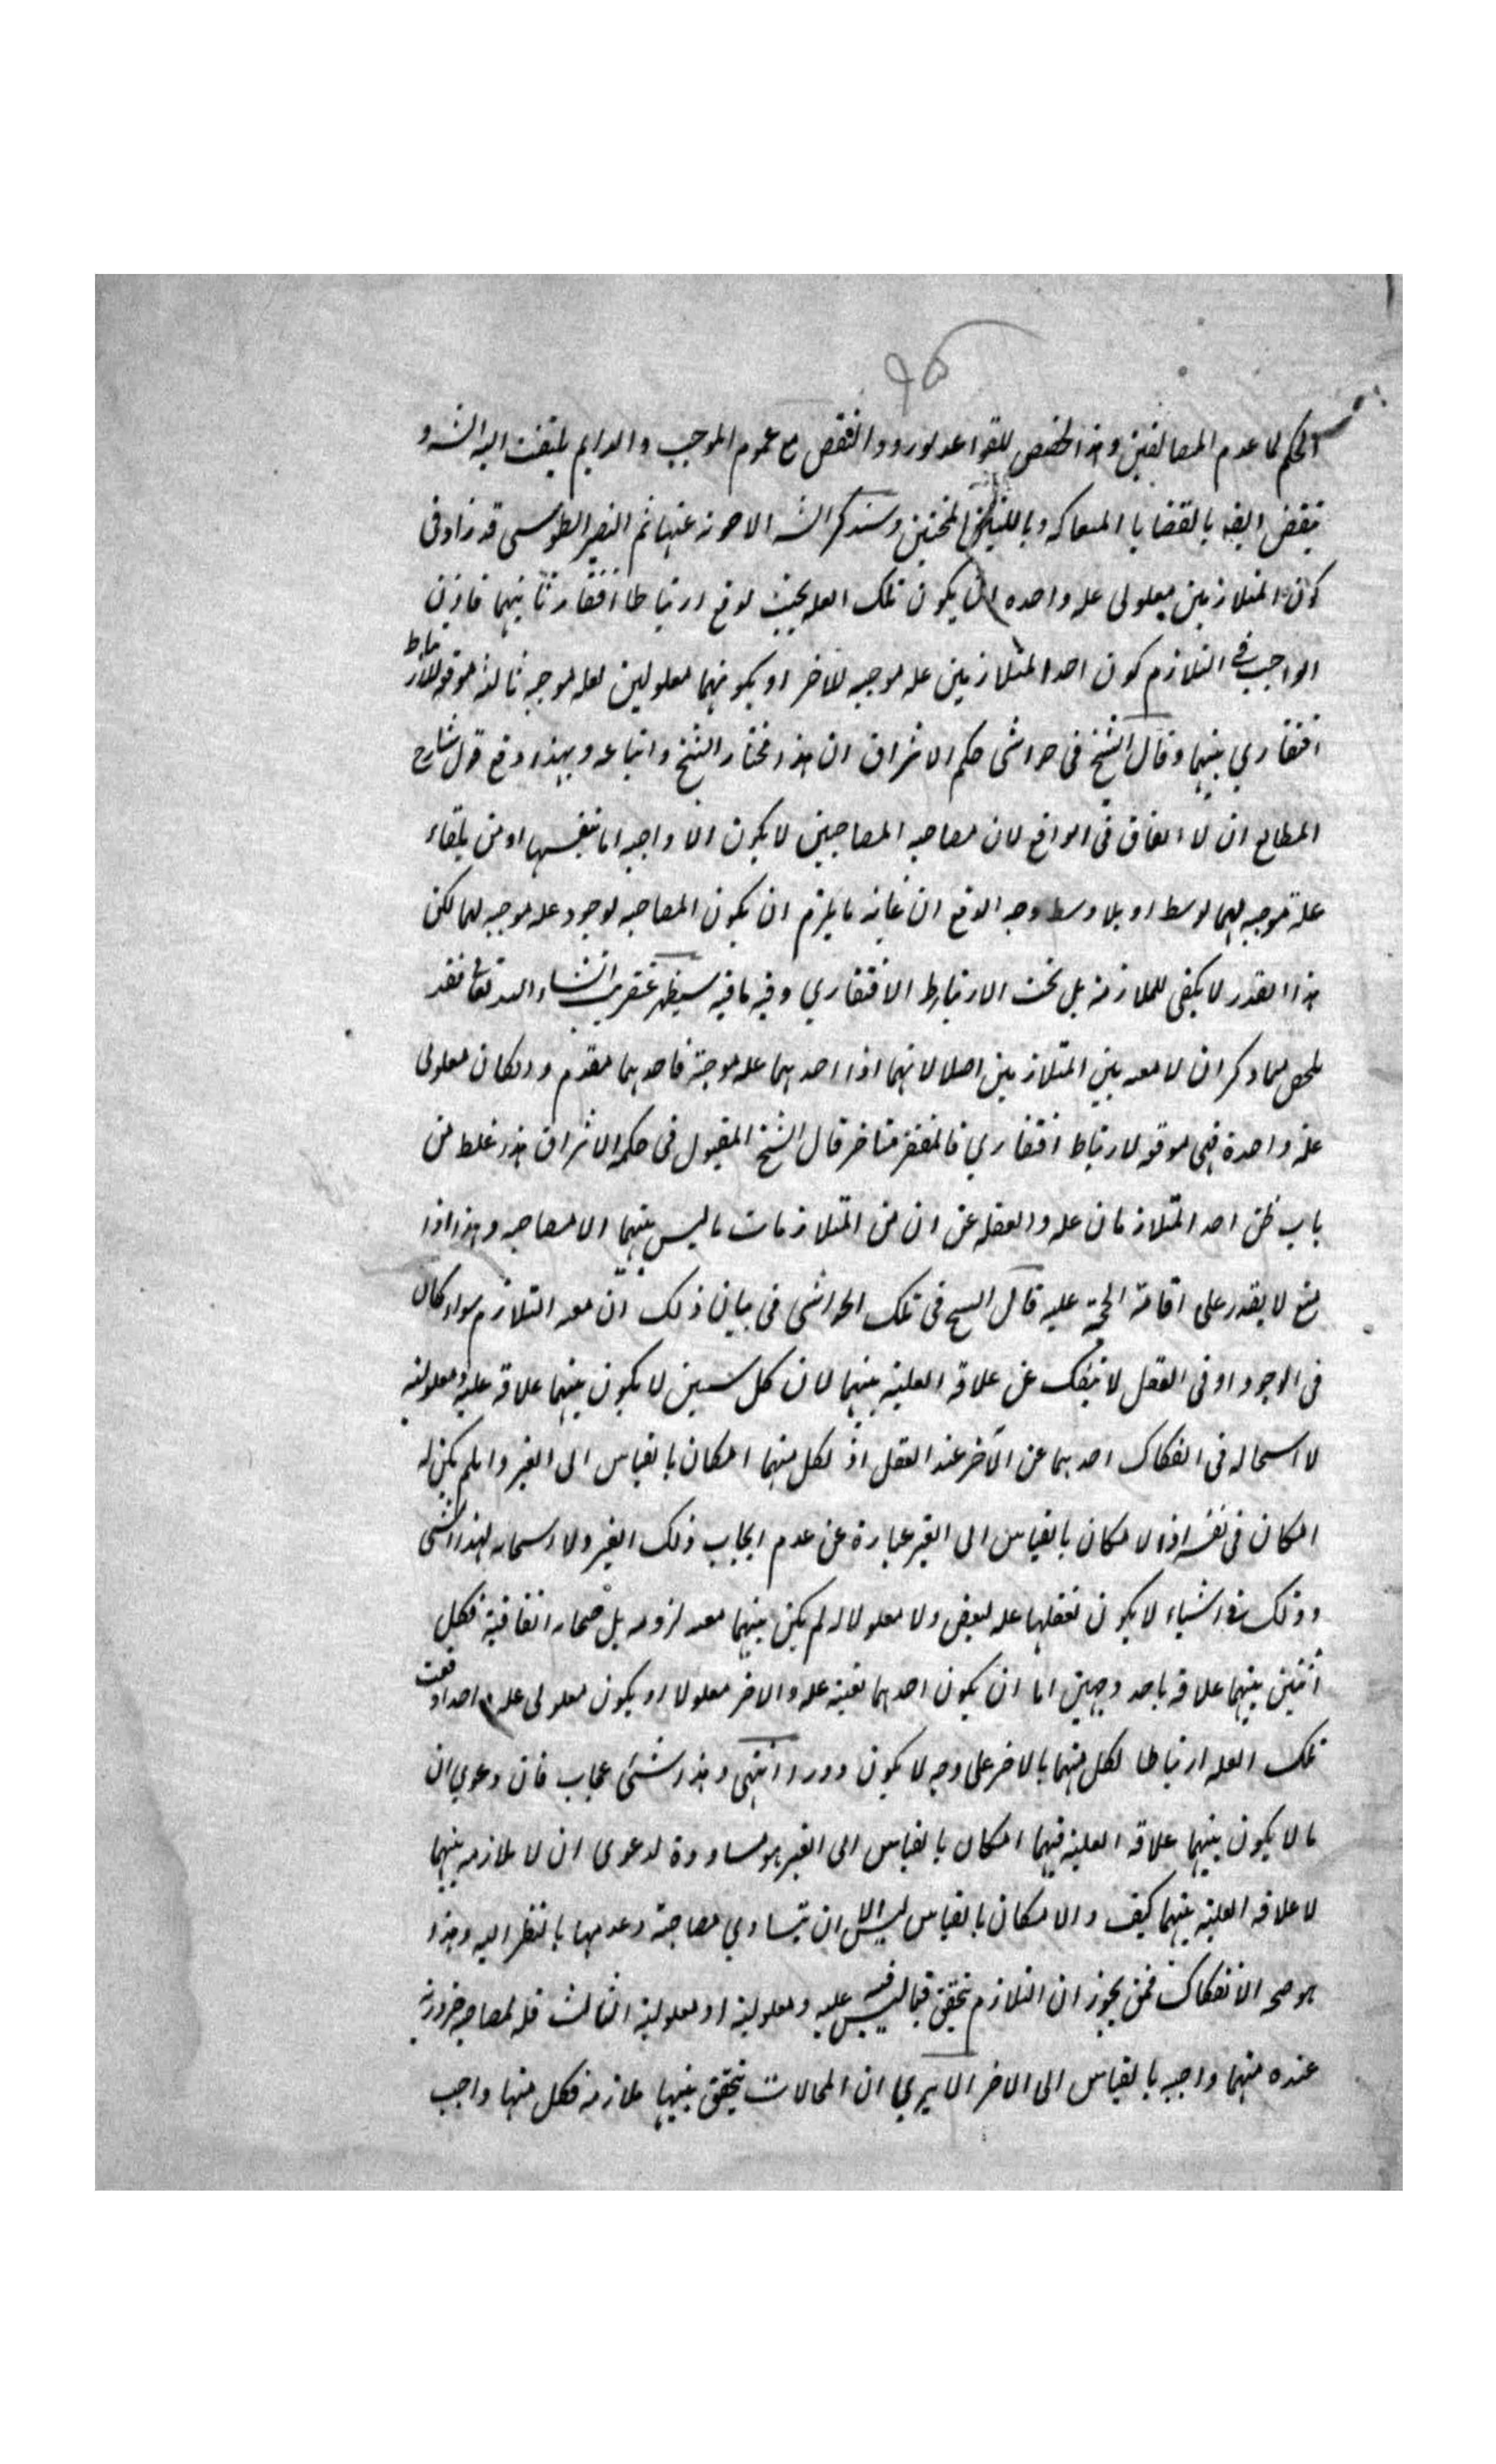 الحكم لما عدم المضايفين وهذا تخصيص للقواعد لورود النقص مع عموم الموجب والدايم يلتفت اليه الشـ و
ينقض ايضا بالقضايا المتعاكسه وباللبنتين المنحنيتين وسنذكر الشـ الاجوبة عنها ثم النصير الطوسى قد زاد فى
كون المتلازمين معلولى عله واحده ان يكون تلك العله بحيث توقع ارتباطا افتقاريا بينهما فاذن
الواجب فى التلازم كون احد المتلازمين عله موجبه للاخر او كونهما معلولين لعله موجبه ثالثه موقعه لارتباط
افتقاري بينهما وقال الشيخ فى حواشى حكم الاشراق ان هذا مختار الشيخ واتباعه وبهذا دفع قول شارح
المطالع ان لا اتفاق فى الواقع لان مصاحبه المصاحبين لا يكون الا واجبه اما بنفسها او من تلقاء
علة موجبه لهما بوسط او بلا وسط وجه الدفع ان غاية ما يلزم ان يكون المصاحبه لوجود عله موجبه لهما لكن
هذا القدر لا يكفى للملازمة بل تحت الارتباط الافتقاري وفيه ما فيه سيظهر عنقريب انشاء الله تعالى فقد
تلخص مما ذكر ان لا معيه بين المتلازمين اصلا لانهما اذا احدهما عله موجبة فاحدهما مقدم و ان كان معلولى
علة واحدة فهى موقعه لارتباط افتقاري فالمفتقر متاخر قال الشيخ المقتول فى حكمه الاشراق هذا غلط من
باب ظن احد المتلازمان عله والغفله عن ان من المتلازمات ما ليس بينهما الا مصاحبه وهذا اذا
منع لا يقدر على اقامة الحجة عليه قال الشيخ فى تلك الحواشى فى بيان ذلك ان معيه التلازم سواء كان
فى الوجود او فى العقل لا ينفك عن علاقه العليه بينهما لان كل شيئين لا يكون بينهما علاقة عليه ومعلوليه
لا استحاله فى انفكاك احدهما عن الآخر عند العقل اذ لكل منهما امكان بالقياس الى الغير وان لم يكن له
امكان فى نفسه اذ الامكان بالقياس الى الغير عبارة عن عدم ايجاب ذلك الغير ولا استحاله لهذا الشى
وذلك فى اشياء لا يكون تعقلها عله لبعض ولا معلولا له لم يكن بينهما معيه لزوميه بل صحابه اتفاقية فكل
اثنين بينهما علاقه باحد وجهين اما ان يكون احدهما بعينه عله والاخر معلولا او يكون معلولى عله واحد اوقعت
تلك العله ارتباطا لكل منهما بالاخر على وجه لا يكون دورا انتهى وهذا شئ عجاب فان دعوي ان
ما لا يكون بينهما علاقه العليه فيهما امكان بالقياس الى الغير هو مساوقة لدعوى ان لا ملازمه بينهما
لا علاقه العليه بينهما كيف والامكان بالقياس ليس الا ان يتساوي مصاحبة وعدمها بالنظر اليه وهذا
هو صحه الانفكاك فمن يجوز ان التلازم يتحقق فيما ليس فيه عليه ومعلولية او معلوليه الثالث فالمصاحبه ضرورية
عنده منهما واجبه بالقياس الى الاخر الا يري ان المحالات يتحقق بينها ملازمة فكل منها واجب